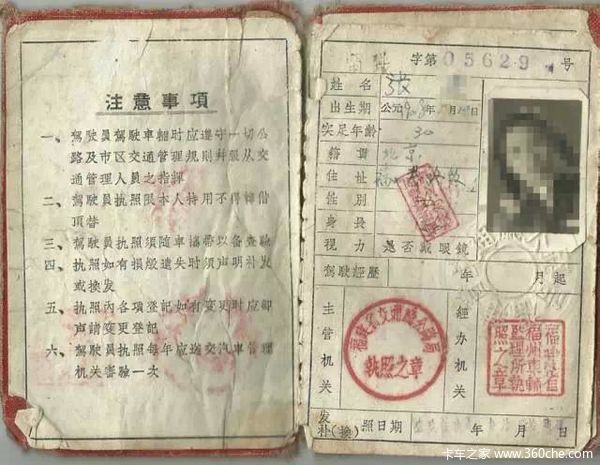 注意事項
一、駕駛員駕駛車輛时应遵守一切公
路及市区交通管理規则并服从交
通管理人员之指揮
二、駕駛員执照限本人持用不得轉借
頂替
三、駕駛員执照須隨車携带以备查驗
四、执照如有損毁遺失时須声明补发
或換发
五、执照內各項登記如有变更时应卽
声請变更登記
六、駕駛員执照每年应送交汽車管理
机关審驗一次
字第 05629 号
姓名 張
出生期 公元19
实足年龄 30
籍貫 北京
住址 福
性别
身長
視力 是否戴眼鏡
駕駛經歷 年 月起
主管机关
執照之章
經办机关
福州車輛
監理所執
照之章
发
补(換)照日期 年 月 日
卡车之家 www.360che.com